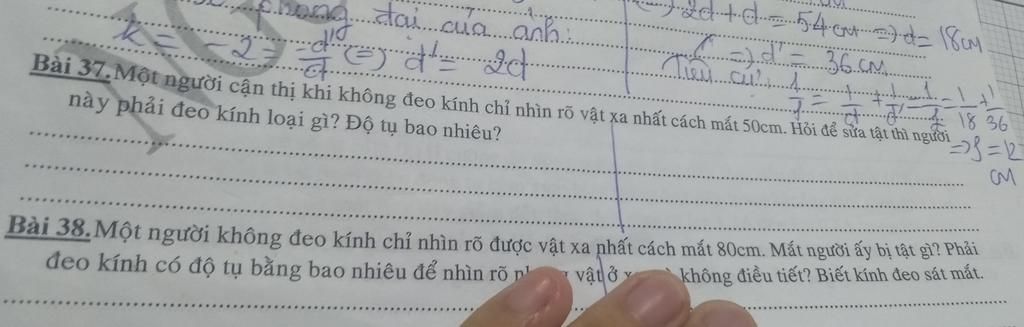 phóng đại của ảnh:
k = -2 = -d'/d (=) d' = 2d
=) 2d + d = 54 cm =) d = 18cm
=) d' = 36 cm
Tiêu cự: 1/f = 1/d + 1/d' = 1/18 + 1/36
=) f = 12
cm
Bài 37. Một người cận thị khi không đeo kính chỉ nhìn rõ vật xa nhất cách mắt 50cm. Hỏi để sửa tật thì người
này phải đeo kính loại gì? Độ tụ bao nhiêu?
Bài 38. Một người không đeo kính chỉ nhìn rõ được vật xa nhất cách mắt 80cm. Mắt người ấy bị tật gì? Phải
đeo kính có độ tụ bằng bao nhiêu để nhìn rõ vật ở không điều tiết? Biết kính đeo sát mắt.